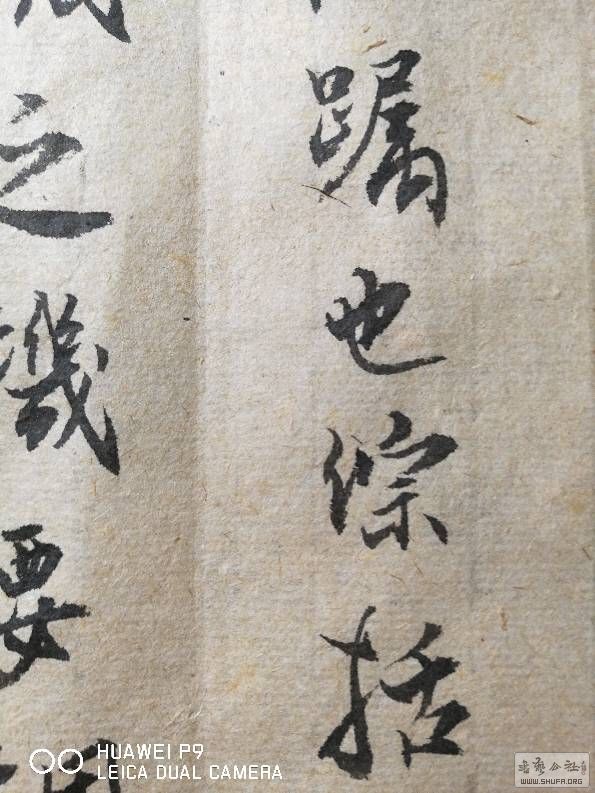 躅也綜括
之機要
HUAWEI P9
LEICA DUAL CAMERA
WWW.SHUFA.ORG